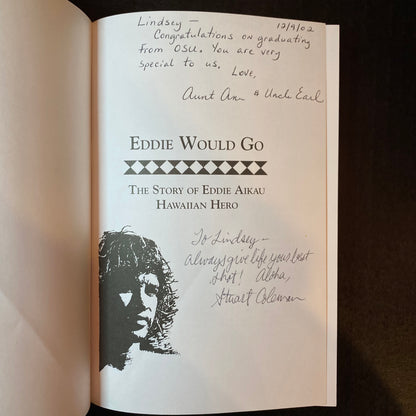 Lindsey — 12/9/02
Congratulations on graduating
from OSU. You are very
special to us.
Love,
Aunt Ann & Uncle Earl
EDDIE WOULD GO
THE STORY OF EDDIE AIKAU
HAWAIIAN HERO
To Lindsey —
Always give life your best
shot! Aloha,
Stuart Coleman